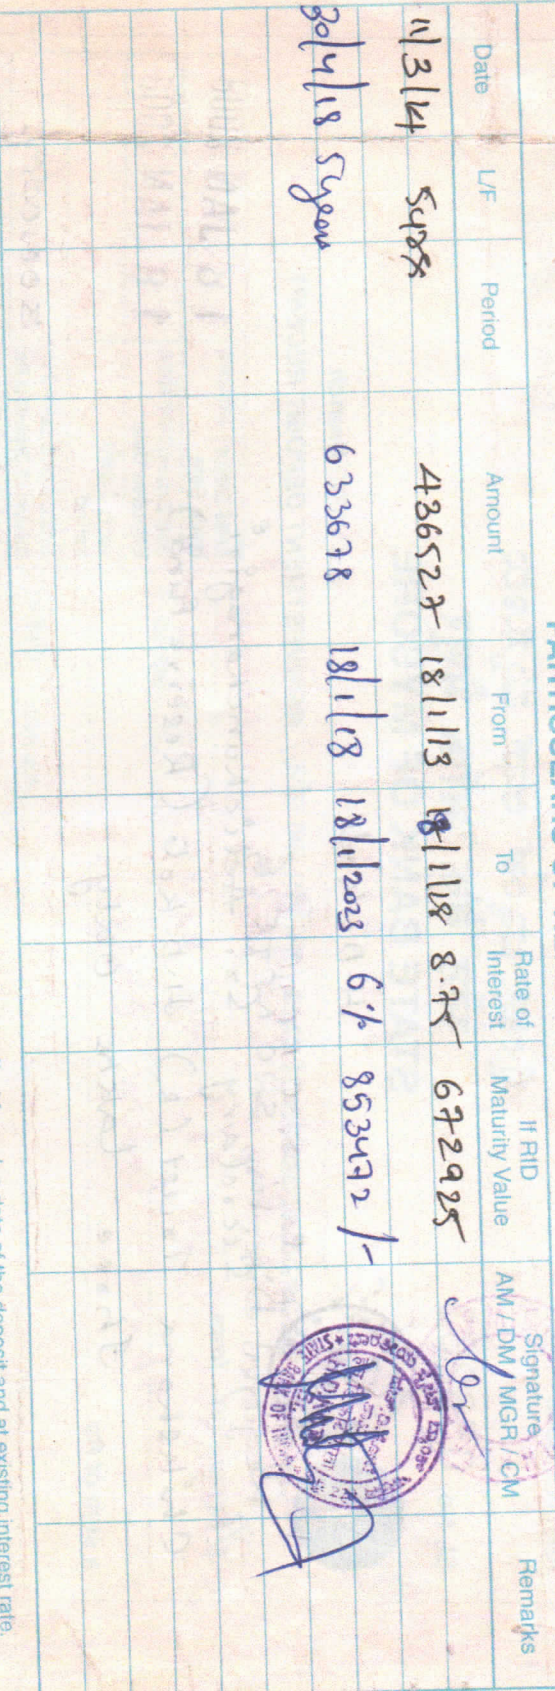 Date L/F Period Amount From To Rate of Interest If RID Maturity Value Signature AM / DM / MGR / CM Remarks
11/3/14 5yrs 436527 18/1/13 18/1/18 8.75 672925
30/4/18 5years 633678 18/1/18 18/1/2023 6% 853472/-
STATE BANK OF
of the deposit and at existing interest rate.